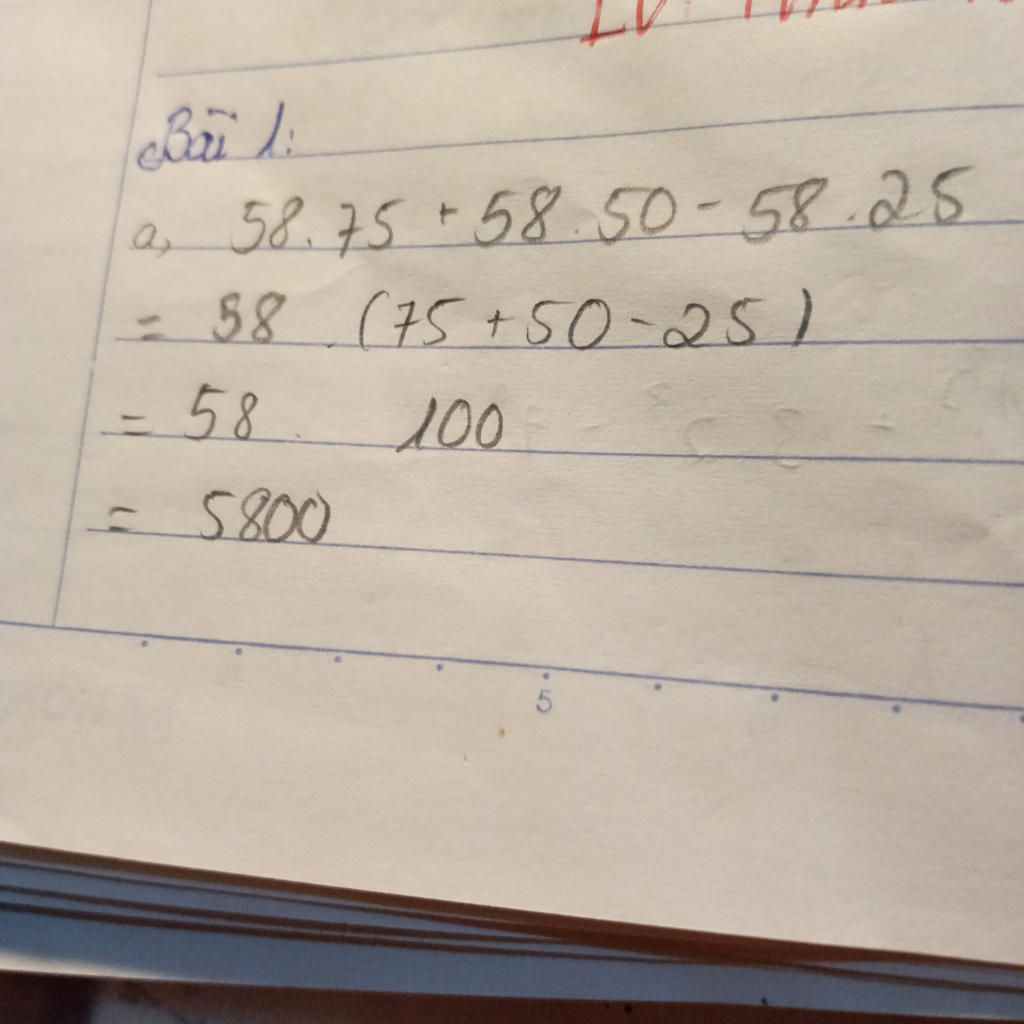 Bài 1:
a, 58.75 + 58.50 - 58.25
= 58 . (75 + 50 - 25)
= 58 . 100
= 5800
5